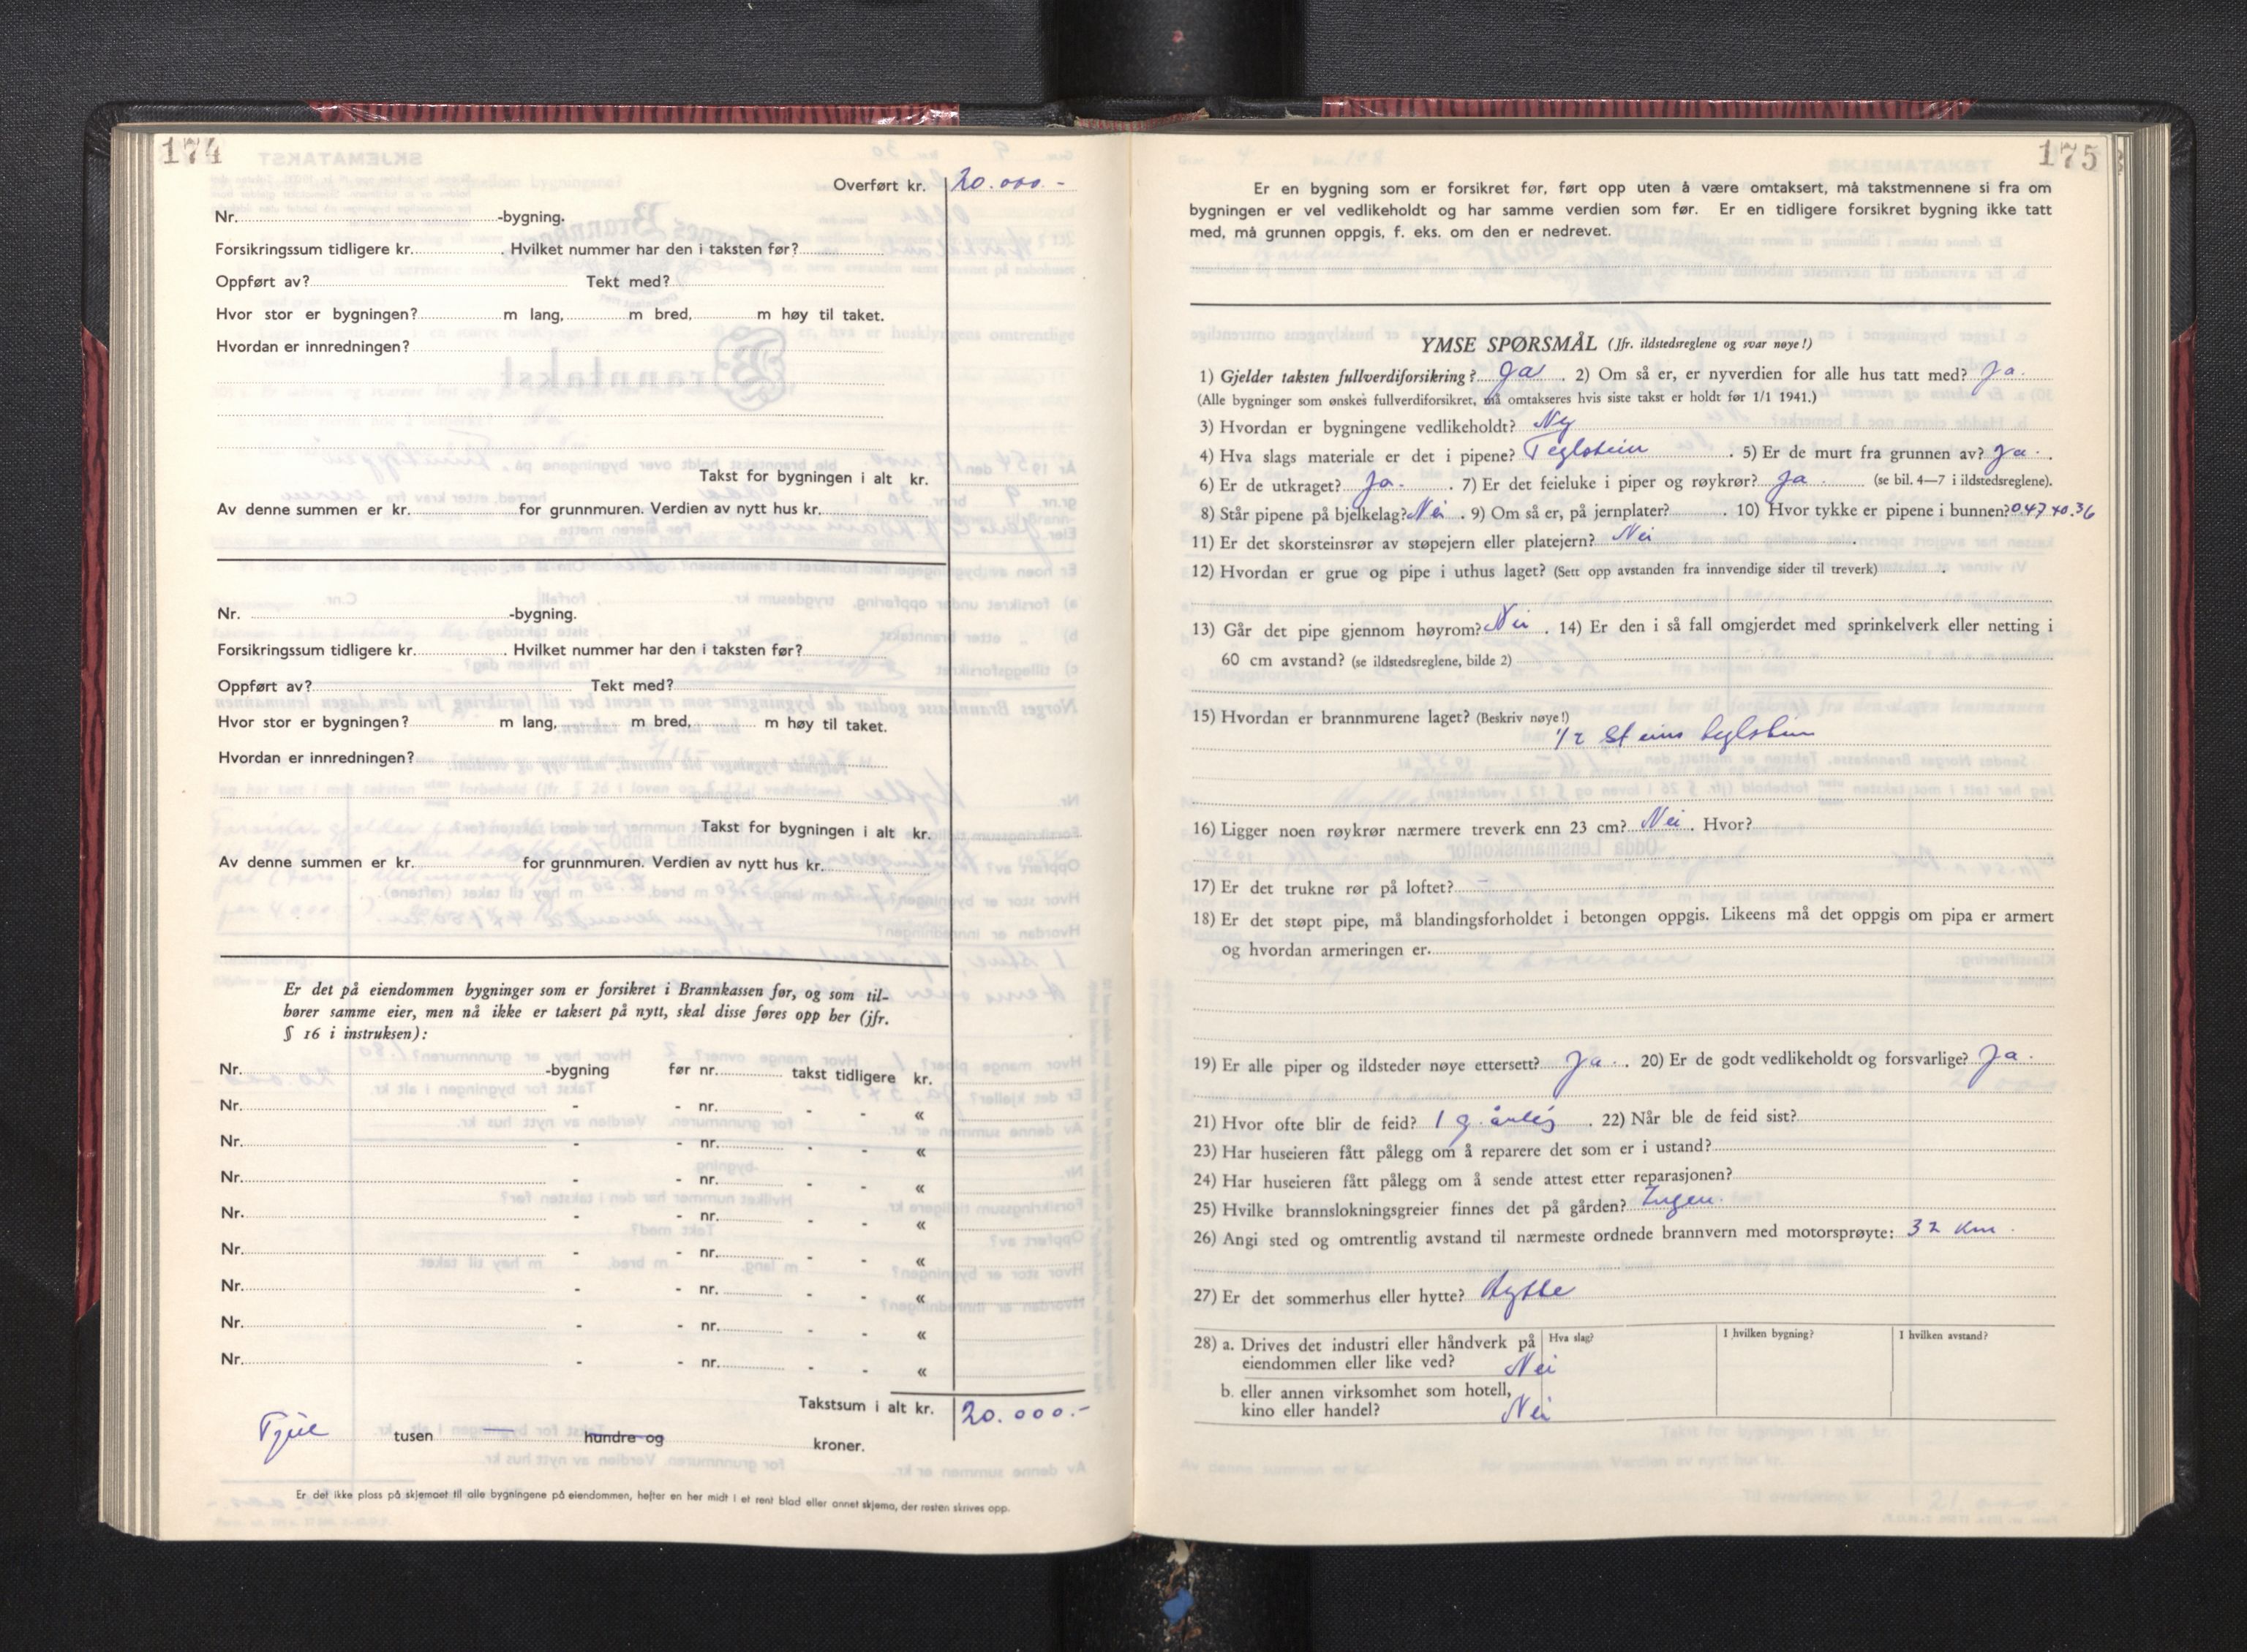 174
Overført kr. 20.000.-
Nr. -bygning.
Forsikringssum tidligere kr. . Hvilket nummer har den i taksten før?
Oppført av? Tekt med?
Hvor stor er bygningen? m lang, m bred, m høy til taket.
Hvordan er innredningen?
Takst for bygningen i alt kr.
Av denne summen er kr. for grunnmuren. Verdien av nytt hus kr.
Nr. -bygning.
Forsikringssum tidligere kr. . Hvilket nummer har den i taksten før?
Oppført av? Tekt med?
Hvor stor er bygningen? m lang, m bred, m høy til taket.
Hvordan er innredningen?
Takst for bygningen i alt kr.
Av denne summen er kr. for grunnmuren. Verdien av nytt hus kr.
Er det på eiendommen bygninger som er forsikret i Brannkassen før, og som til-
hører samme eier, men nå ikke er taksert på nytt, skal disse føres opp her (jfr.
§ 16 i instruksen):
Nr. -bygning før nr. takst tidligere kr.
Nr. - - nr. - - «
Nr. - - nr. - - «
Nr. - - nr. - - «
Nr. - - nr. - - «
Nr. - - nr. - - «
Nr. - - nr. - - «
Nr. - - nr. - - «
Nr. - - nr. - - «
Takstsum i alt kr. 20.000.-
Tjue tusen — hundre og kroner.
Er det ikke plass på skjemaet til alle bygningene på eiendommen, hefter en her midt i et rent blad eller annet skjema, der resten skrives opp.
175
Er en bygning som er forsikret før, ført opp uten å være omtaksert, må takstmennene si fra om
bygningen er vel vedlikeholdt og har samme verdien som før. Er en tidligere forsikret bygning ikke tatt
med, må grunnen oppgis, f. eks. om den er nedrevet.
YMSE SPØRSMÅL (Jfr. ildstedsreglene og svar nøye!)
1) Gjelder taksten fullverdiforsikring? Ja . 2) Om så er, er nyverdien for alle hus tatt med? Ja.
(Alle bygninger som ønskes fullverdiforsikret, må omtakseres hvis siste takst er holdt før 1/1 1941.)
3) Hvordan er bygningene vedlikeholdt? Ny
4) Hva slags materiale er det i pipene? Teglstein . 5) Er de murt fra grunnen av? Ja. .
6) Er de utkraget? Ja. . 7) Er det feieluke i piper og røykrør? Ja . (se bil. 4—7 i ildstedsreglene).
8) Står pipene på bjelkelag? Nei . 9) Om så er, på jernplater? . 10) Hvor tykke er pipene i bunnen? 0.47 x 0.36
11) Er det skorsteinsrør av støpejern eller platejern? Nei .
12) Hvordan er grue og pipe i uthus laget? (Sett opp avstanden fra innvendige sider til treverk) .
13) Går det pipe gjennom høyrom? Nei . 14) Er den i så fall omgjerdet med sprinkelverk eller netting i
60 cm avstand? (se ildstedsreglene, bilde 2)
15) Hvordan er brannmurene laget? (Beskriv nøye!)
1/2 steins teglstein
16) Ligger noen røykrør nærmere treverk enn 23 cm? Nei . Hvor?
17) Er det trukne rør på loftet? -
18) Er det støpt pipe, må blandingsforholdet i betongen oppgis. Likeens må det oppgis om pipa er armert
og hvordan armeringen er.
19) Er alle piper og ildsteder nøye ettersett? Ja . 20) Er de godt vedlikeholdt og forsvarlige? Ja.
21) Hvor ofte blir de feid? 1 g. årlig . 22) Når ble de feid sist?
23) Har huseieren fått pålegg om å reparere det som er i ustand?
24) Har huseieren fått pålegg om å sende attest etter reparasjonen?
25) Hvilke brannslokningsgreier finnes det på gården? Ingen.
26) Angi sted og omtrentlig avstand til nærmeste ordnede brannvern med motorsprøyte: 32 km.
27) Er det sommerhus eller hytte? Hytte
28) a. Drives det industri eller håndverk på Hva slag? I hvilken bygning? I hvilken avstand?
eiendommen eller like ved? Nei
b. eller annen virksomhet som hotell,
kino eller handel? Nei